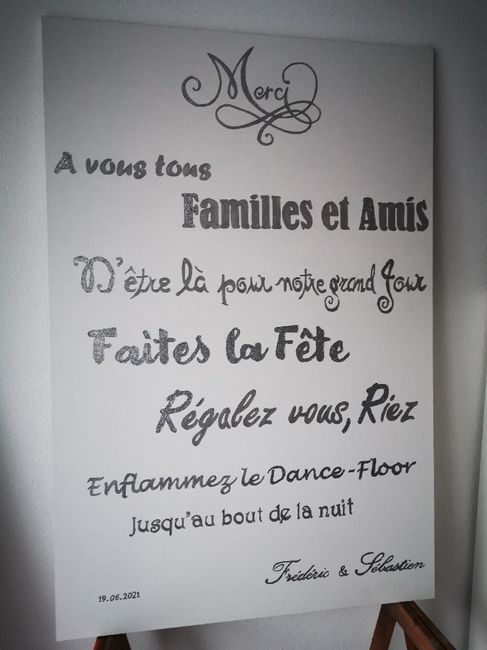 Merci
A vous tous
Familles et Amis
D'être là pour notre grand Jour
Faites la Fête
Régalez vous, Riez
Enflammez le Dance-Floor
Jusqu'au bout de la nuit
Frédéric & Sébastien
19.06.2021